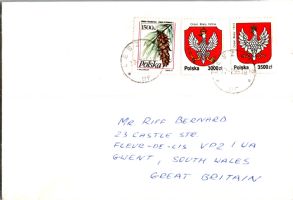 1500zł
Polska
Polska 3000zł
Polska 3500zł
MR RIFF BERNARD
23 CASTLE STR.
FLEUR-DE-LIS VP2 1UA
GWENT, SOUTH WALES
GREAT BRITAIN